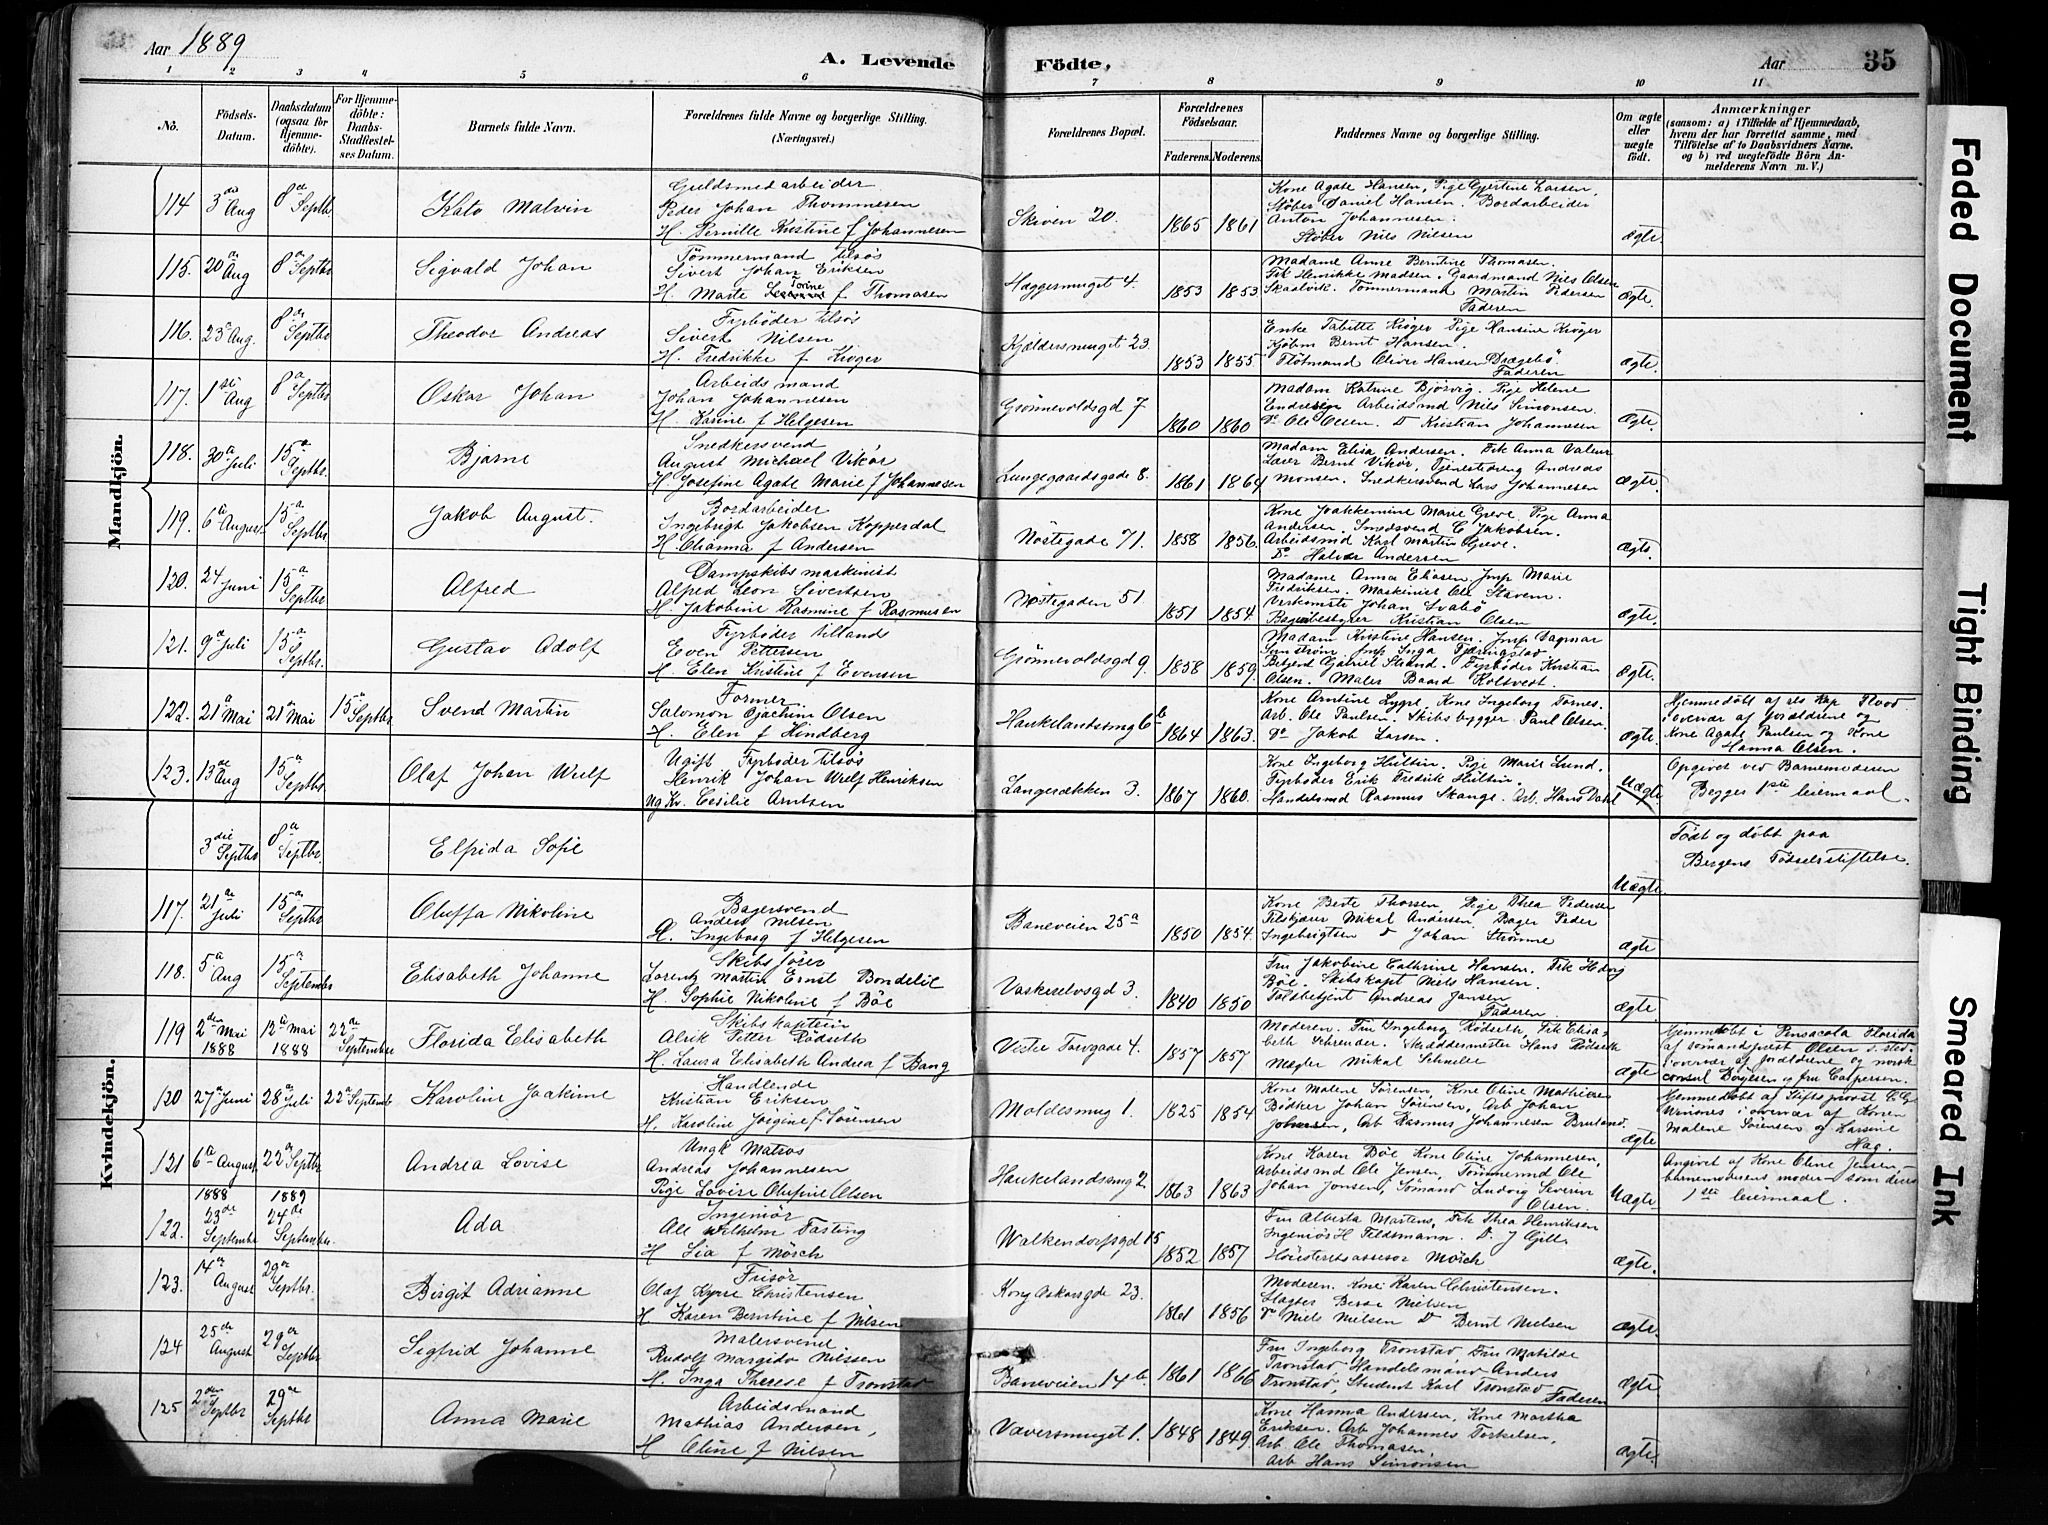 Aar 1889
A. Levende Födte.
Aar 35
1 2 3 4 5 6 7 8 9 10 11
No.
Födsels-Datum.
Daabsdatum (ogsaa for Hjemme-döbte).
For Hjemme-döbte: Daabs-Stadfæstel-ses Datum.
Barnets fulde Navn.
Forældrenes fulde Navne og borgerlige Stilling. (Næringsvei.)
Forældrenes Bopæl.
Forældrenes Födselsaar.
Faderens. Moderens.
Faddernes Navne og borgerlige Stilling.
Om ægte eller uægte födt.
Anmærkninger
(saasom: a) i Tilfælde af Hjemmedaab, hvem der har forrettet samme, med Tilföielse af to Daabsvidners Navne. og b) ved uægtefödte Börn An-melderens Navn m. V.)
Mandkjön.
114 3die Aug 8de Septbr Kato Malvin
Guldsmedarbeider
Peder Johan Thommesen
H. Pernille Kristine f Johannesen
Skiven 20. 1865 1861
Kone Agate Hansen, Pige Gjertine Larsen,
Støber Daniel Hansen. Bordarbeider
Anton Johannesen.
Støber Nils Nilsen
Ægte.
115. 20de Aug 8de Septbr Sigvald Johan
Tömmermand tilsøs
Sivert Johan Eriksen
H. Marte Torine f Thomasen
Hæggesmuget 4. 1853 1853.
Madame Anne Berntine Thomasen.
Frk Henrikke Madsen. Gaardmand Nils Olsen
Skaalvik. Tömmermand Martin Pedersen
Faderen
Ægte.
116. 23de Aug. 8de Septbr Theodor Andreas
Fyrbøder tilsøs
Sivert Nilsen
H. Fredrikke f Krøger
Kjældersmuget 23. 1853 1855.
Enke Tabitte Krøger Pige Hansine Krøger
Kjøbm Bernt Hansen.
Flötmand Oliver Hansen Brægebö
Faderen
Ægte.
117. 1ste Aug 8de Septbr Oskar Johan
Arbeidsmand
Johan Johannesen
H. Karine f Helgesen
Grønnevoldsgd 7 1860 1860
Madam Katrine Bjørvig. Pige Helene
Endresen Arbeidsmd Nils Simonsen.
Do Ole Olsen. Do Kristian Johannesen
Ægte.
118. 30te Juli 15de Septbr. Bjarne
Snedkersvend
August Michael Vikør
H Josefine Agate Marie f Johannesen
Lungegaardsgade 8. 1861 1864
Madam Elisa Andersen. Frk Anna Valeur
Lærer Bernt Vikør, Tjenestedreng Andreas
Monsen. Snedkersvend Lars Johannesen
Ægte.
119. 6te August. 15de Septbr. Jakob August.
Bordarbeider
Ingebrigt Jakobsen Kopperdal
H. Olianna f Andersen
Nöstegade 71. 1858 1856.
Kone Joakkemine Marie Greve. Pige Anna
Andersen. Smedsvend C Jakobsen.
Arbeidsmd Karl Martin Greve.
Do Halvor Andersen
Ægte.
120. 24 Juni 15de Septbr. Alfred
Dampskibsmaskinist
Alfred Leon Sivertsen
H. Jakobine Rasmine f Rasmusen
Nöstegaden 51 1851 1854.
Madame Anna Eliasen, Jmp Marie
Fredriksen. Maskinist Ole Stavem.
Verksmste Johan Svabö
Bageribestyrer Kristian Olsen
Ægte.
121. 9de Juli 15de Septbr. Gustav Adolf
Fyrbøder tillands
Even Pettersen
H. Elen Kristine f Evensen
Grønnevoldsgd 9. 1858 1859.
Madam Kristine Hansen. Jmp Dagmar
Sanström Jmp Inga Fjæringstad
Betjent Gabriel Strand. Fyrbøder Kristian
Olsen. Maler Baard Rolsvedt.
Ægte.
122. 21de Mai 21de Mai 15de Septbr Svend Martin
Former.
Salomon Ojachim Olsen
H. Elen f Hindberg
Haukelandsmg 6b 1864 1863.
Kone Arntine Lygre, Kone Ingeborg Tornes.
Arb. Ole Paulsen. Skibsbygger Paul Olsen.
Do Jakob Larsen.
Ægte.
Hjemmedöbt af res Kap Flood
i overvær af forældrene og
Kone Agate Paulsen og Kone
Hanna Olsen.
123. 13de Aug 15de Septbr. Olaf Johan Wulf
Ugift Fyrbøder tilsøs
Henrik Johan Wulf Henriksen
Ug Kv. Cesilie Arntsen
Langerækken 3. 1867 1860.
Kone Ingeborg Hultin. Pige Marie Lund.
Fyrbøder Erik Fredrik Hultin.
Handelsmd Rasmus Skange. Arb. Hans Dahl
Uægte
Opgivet ved Barnemoderen
Begges 1ste leiermaal.
Kvindekjön.
3die Septbr 8de Septbr. Elfrida Sofie
Uægte
Födt og döbt paa
Bergens Födselsstiftelse.
117. 21de Juli 15de Septbr Oluffa Nikoline
Bagersvend
Anders Nilsen
H. Ingeborg f Helgesen
Baneveien 25a 1850 1854.
Kone Berte Thorsen Pige Thea Pedersen
Filskjærer Mikal Andersen Bager Peder
Ingebrigtsen Do Johan Strömme
Ægte
118. 5te Aug 15de Septembr Elisabeth Johanne
Skibsförer
Lorentz Martin Ernst Bondelie
H. Sophie Nikoline f Böe
Vaskerelvsgd 3. 1840 1850
Fru Jakobine Cathrine Hansen. Frk Hedvig
Böe. Skibskapt Niels Hansen.
Toldbetjent Andreas Jansen
Faderen.
Ægte
119 2den Mai 1888 12te Mai 1888 22de Septembr Florida Elisabeth
Skibskaptein
Alrik Petter Rödseth
H. Laura Elisabeth Andrea f Bang
Vestre Torvgade 4. 1857 1857
Moderen. Fru Ingeborg Rödseth, Frk Elisa-
beth Schreuder. Skræddermester Hans Rödseth
Mægler Mikal Schnelle
Ægte.
Hjemmedöbt i Pensacola Florida
af sömandsprest Olsen s. std.
i overvær af forældrene og norsk
consul Börjesen og fru Caspersen.
120 27de Juni 28de Juli 22de Septemb Karoline Joakime
Handlende
Kristian Eriksen
H. Karoline Jörgine f Sörensen
Moldesmug 1. 1825 1854
Kone Malene Sörensen, Kone Oline Mathiesen
Bödker Johan Sörensen, Arb Johan
Johnsen, Arb Rasmus Johannesen Bruland.
Ægte
Hjemmedöbt af Stiftsprovst
i overvær af Konen
Malene Sörensen og Larsine
Hag.
121 6te August. 22de Septbr Andrea Lovise
Ungk Matros
Andreas Johannesen
Pige Lovise Olufine Olsen
Haukelandsmg 2. 1863 1863
Kone Karen Böe Kone Oline Johannesen,
Arbeidsmd Ole Jensen, Tömmermd Ole
Johan Jonsen, Sömand Ludvig Severin
Olsen.
Uægte.
Angivet af Kone Oline Jensen,
barnemoderens moder som deres
1ste leiermaal.
122. 1888 23de Septembr 1889 24de Septembr. Ada
Ingeniör
Ole Wilhelm Fasting
H Lia f Mörch
Walkendorfsgd 15 1852 1857
Fru Alberta Martens, Frk Thea Henriksen
Ingeniör H Feldsmann. Do J Gill.
Höiesteretsassesor Mörch
Ægte.
123. 14de August 29de Septbr. Birgit Adrianne
Frisör
Olaf Kyrre Christensen
H. Karen Berntine f Nilsen
Kong Oskarsgde 23. 1861 1856
Moderen. Kone Karen Christensen.
Slagter Berse Nielsen
Do Niels Nielsen Do Bernt Nielsen
Ægte.
124 25de August 29de Septbr Sigfrid Johanne
Malersvend
Rudolf Margido Nilssen
H. Inga Therese f Tronstad
Baneveien 14b. 1861 1866
Fru Ingeborg Tronstad, Fru Matilde
Tronstad Handelsmand Anders
Tronstad, Student Karl Tronstad
Faderen
Ægte
125 2den Septbr 29de Septbr Anna Marie
Arbeidsmand
Mathias Andersen,
H Oline f Nilsen
Væversmuget 1. 1848 1849.
Kone Hanna Andersen, Kone Martha
Eriksen. Arb Johannes Torkelsen,
Arb Ole Thomasen,
Arb Hans Simonsen
Ægte.
Faded Document
Tight Binding
Smeared Ink